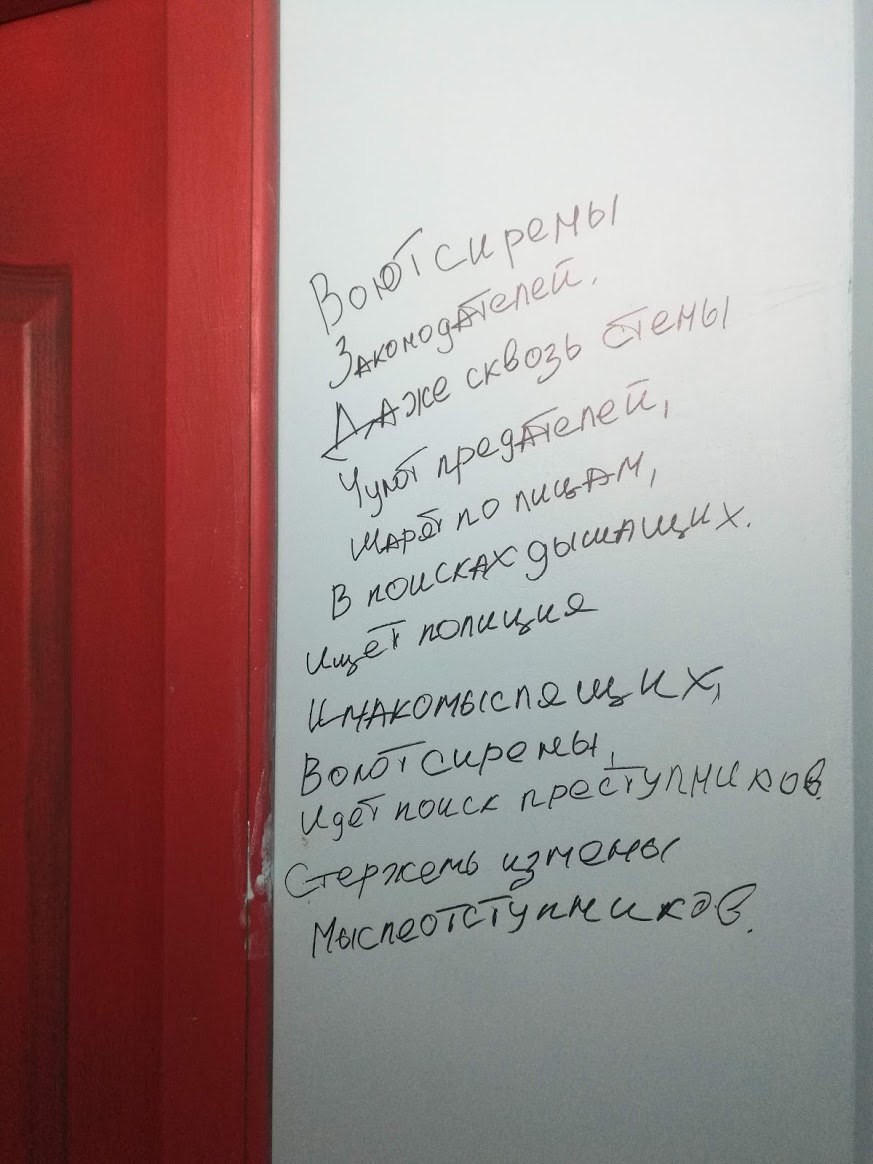 Воют сирены
Законодателей.
Даже сквозь стены
Чуют предателей,
Шарят по лицам,
В поисках дышащих.
Ищет полиция
Инакомыслящих,
Воют сирены,
Идёт поиск преступников.
Стержень измены
Мыслеотступников.